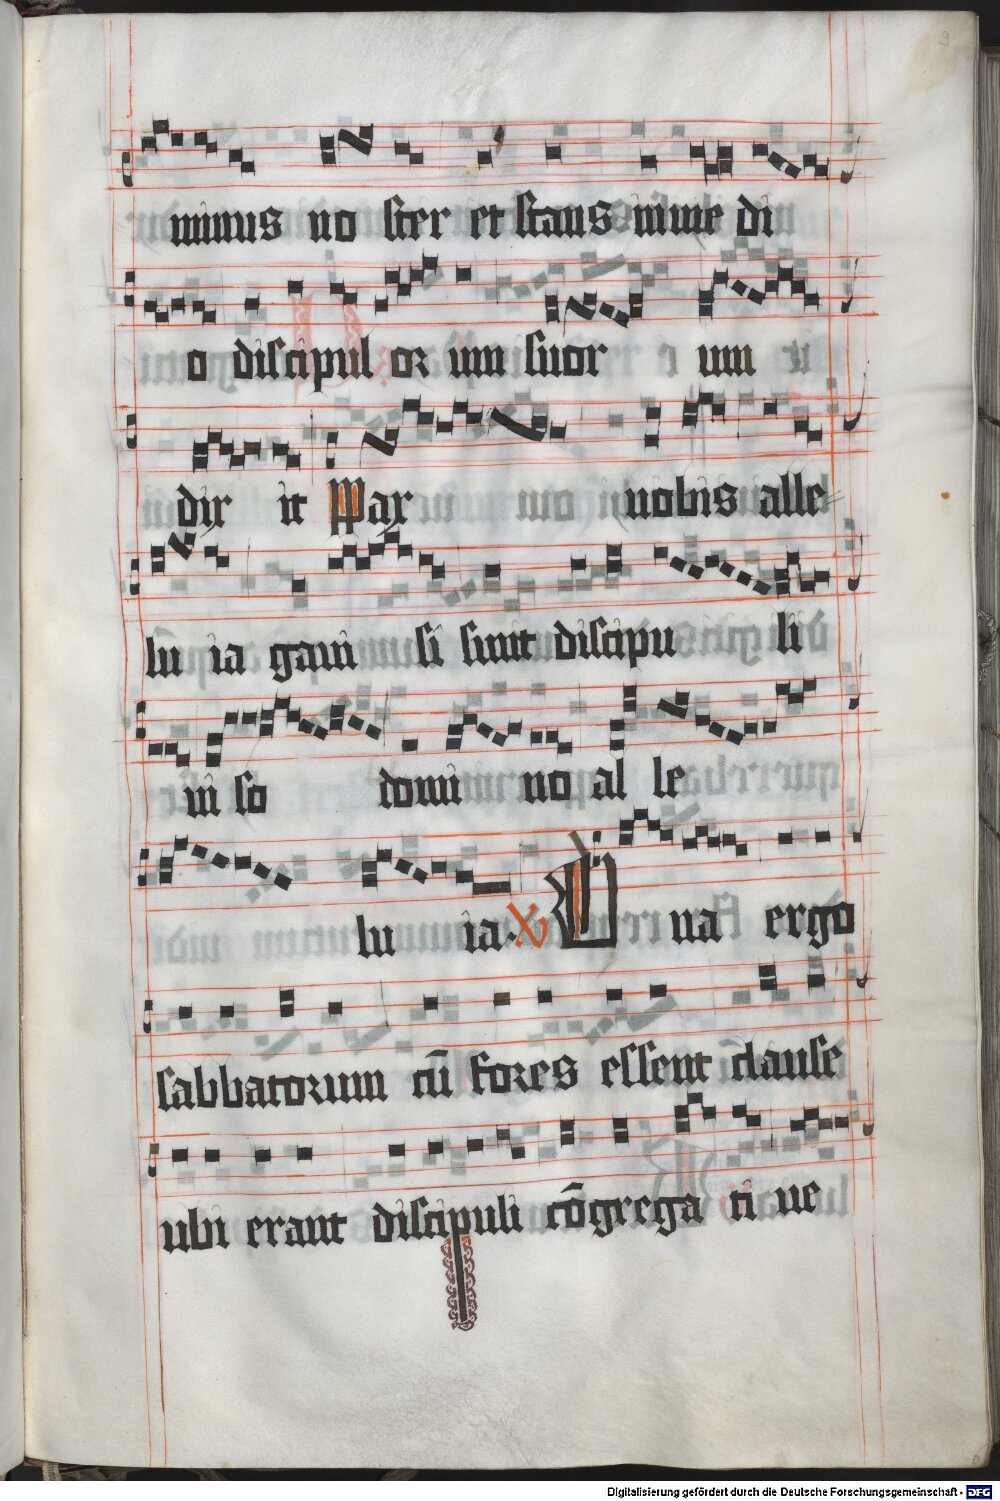 minus no ster et stans in me di
o discipul or um suor um
dix it Pax uobis alle
lu ia gaui si sunt discipu li
ui so domi no al le
lu ia. V Una ergo
sabbatorum cū fores essent clause
ubi erant discipuli cōgrega ti ue
Digitalisierung gefördert durch die Deutsche Forschungsgemeinschaft - DFG